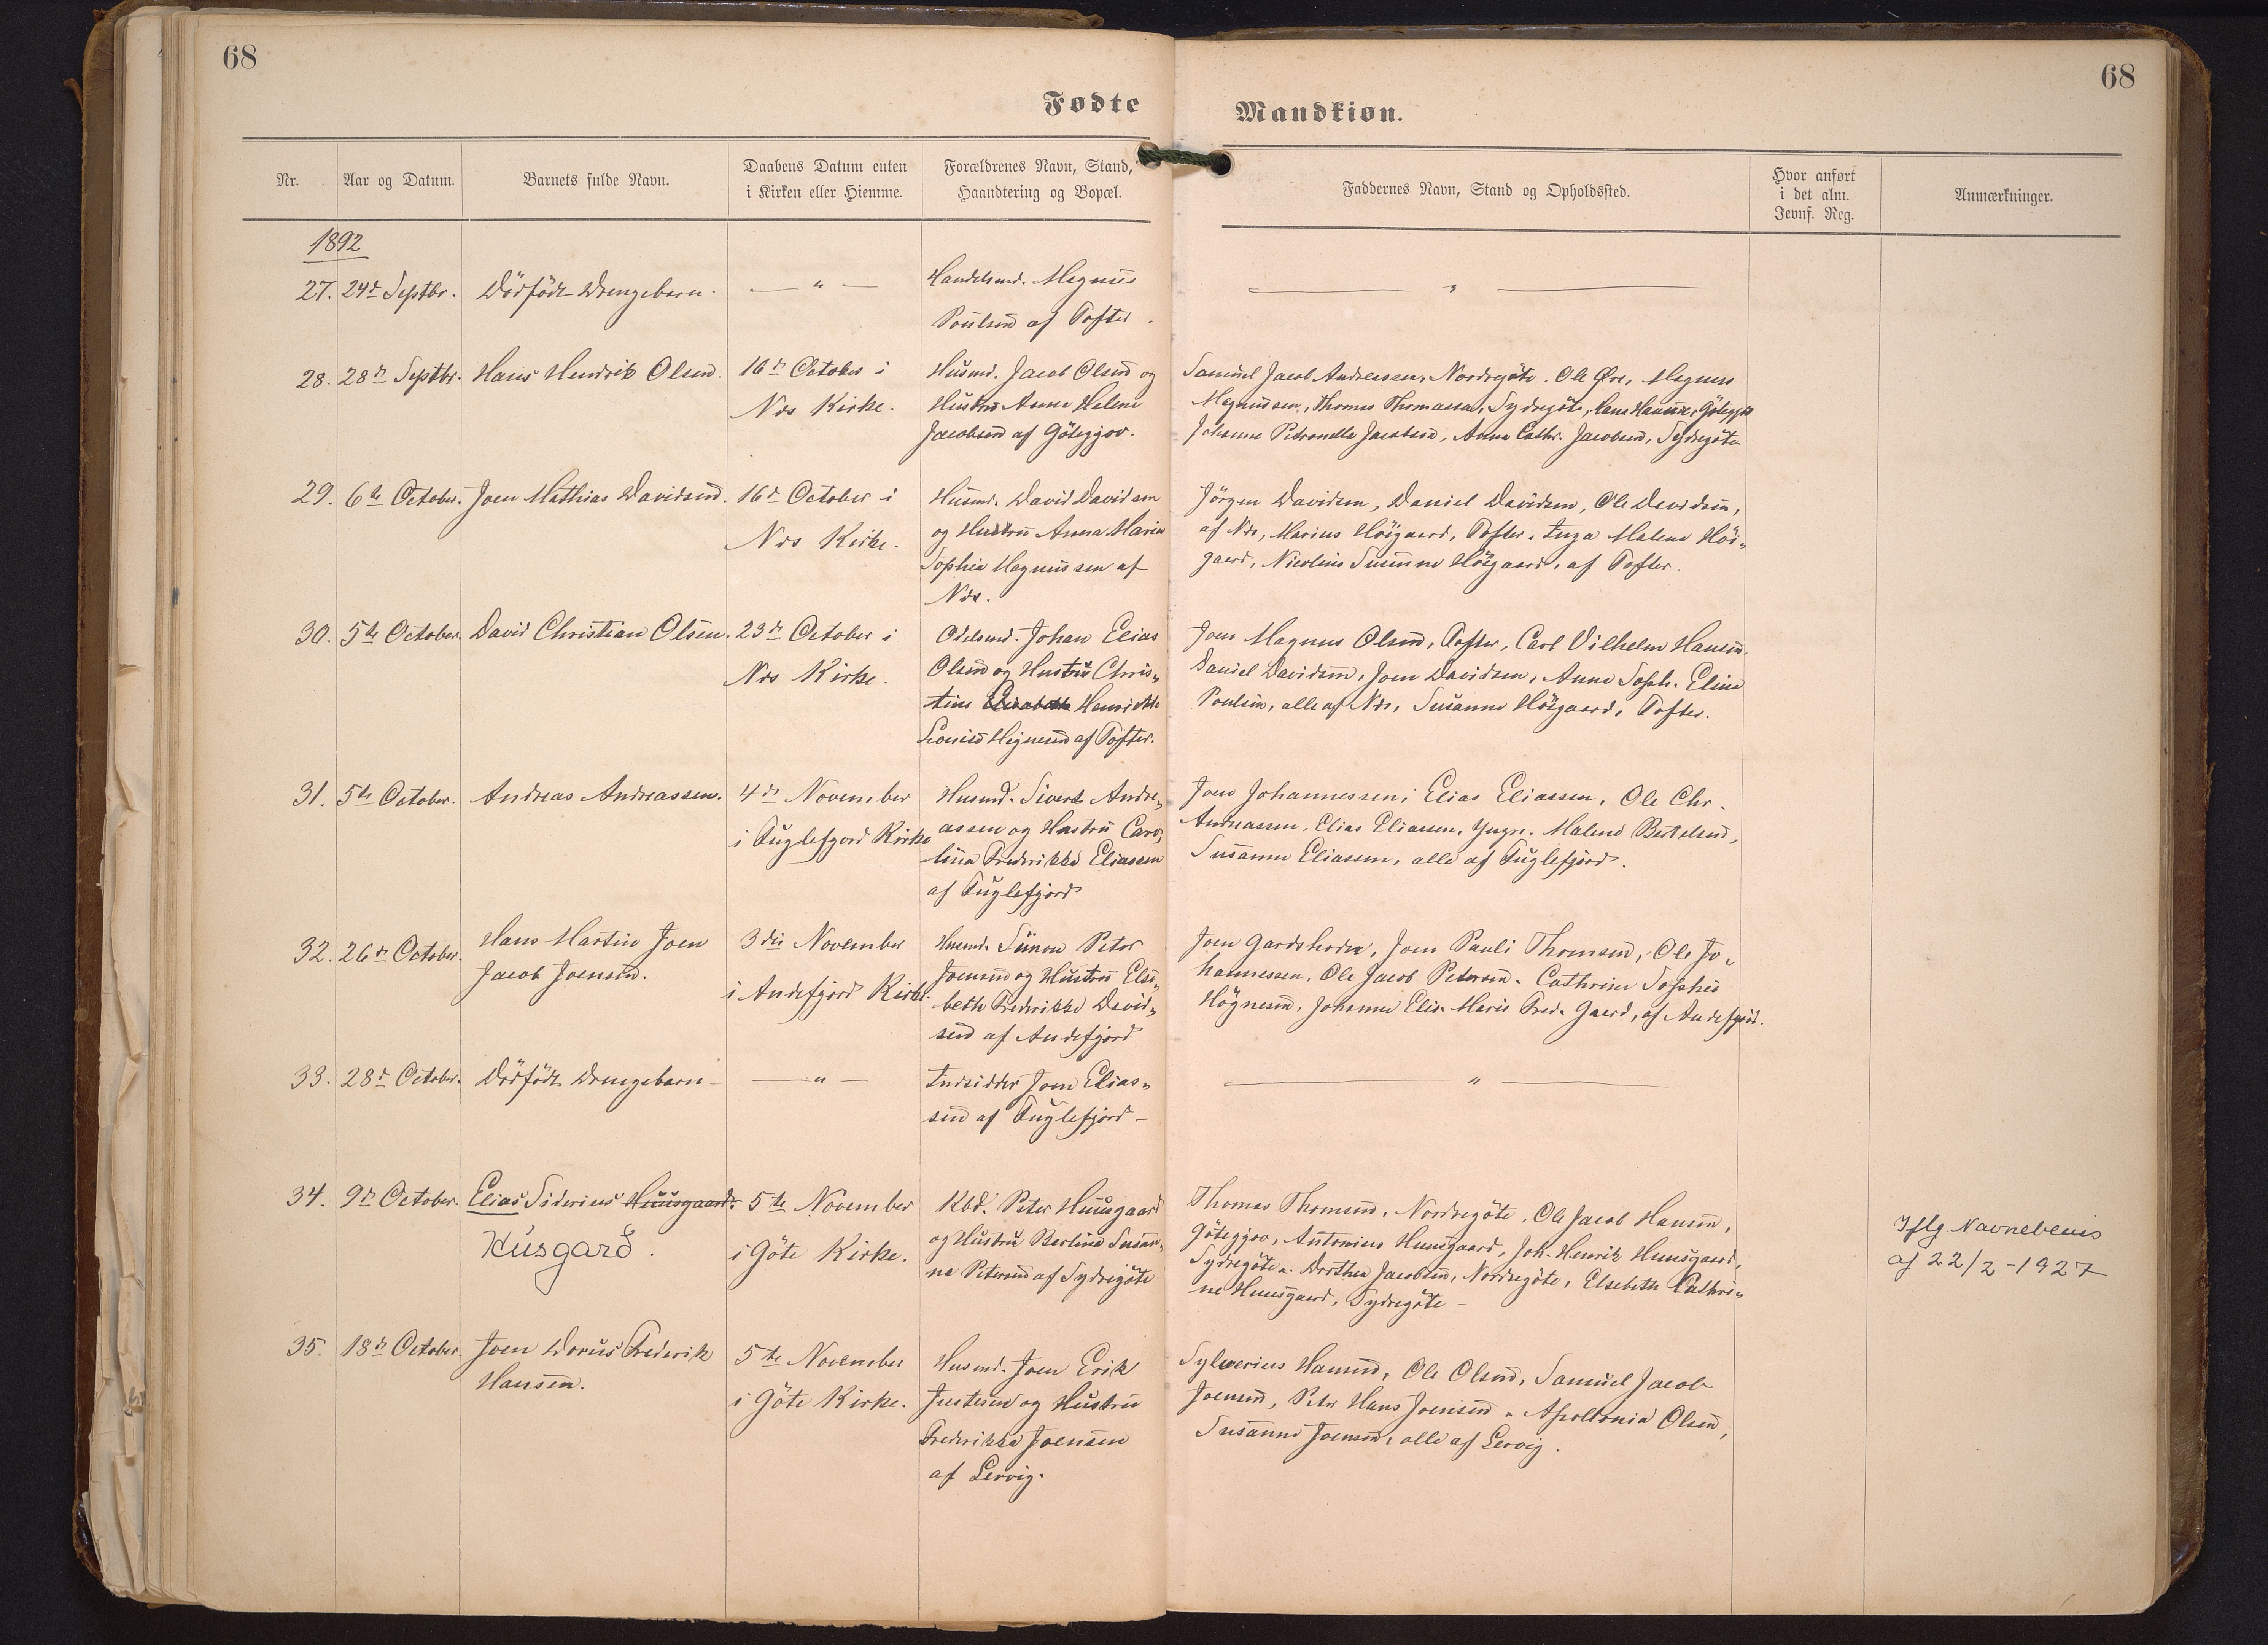 68
68
Fødte
Mandkiøn.
Nr.
Aar og Datum.
Barnets fulde Navn.
Daabens Datum enten
i Kirken eller Hiemme.
Forældrenes Navn, Stand,
Haandtering og Bopæl.
Faddernes Navn, Stand og Opholdssted.
Hvor anført
i det alm.
Jevnf. Reg.
Anmærkninger.
1892
27. 24de Septbr. Dödfödt Drengebarn. — " —
Handelsmd. Magnus
Poulsen af Tofter.
— " —
28. 28de Septbr. Hans Hendrik Olsen.
16de October i
Næs Kirke.
Husmd. Jacob Olsen og
Hustru Anna Helene
Jacobsen af Götegjov.
Samuel Jacob Andreasen, Nordregöte. Ole Øre, Magnus
Magnussen, Thomas Thomassen, Sydregöte, Hans Hansen, Götegjov
Johanne Petronella Jacobsen, Anna Cathr. Jacobsen, Sydregöte.
29. 6te October. Joen Mathias Davidsen.
16de October i
Næs Kirke.
Husmd. David Davidsen
og Hustru Anna Maria
Sophie Magnussen af
Næs.
Jörgen Davidsen, Daniel Davidsen, Ole Davidsen,
af Næs, Marius Höigaard, Tofter. Inga Malene Höi-
gaard, Nicoline Susanne Höigaard, af Tofter.
30. 5te October. David Christian Olsen.
23de October i
Næs Kirke.
Odelsmd. Johan Elias
Olsen og Hustru Chris-
tine Elisabeth Henriette
af Tofter.
Joen Magnus Olsen, Tofter, Carl Vilhelm Hansen,
Daniel Davidsen, Joen Davidsen, Anna Soph. Elina
Poulsen, alle af Næs, Susanne Höigaard, Tofter.
31. 5te October. Andreas Andreassen.
4de November
i Fuglefjord Kirke
Husmd. Sivert Andre-
assen og Hustru Caro-
lina Frederikke Eliassen
af Fuglefjord
Joen Johannessen, Elias Eliassen, Ole Chr.
Andreassen, Elias Eliassen, Yngre. Malene Bertelsen,
Susanne Eliassen, alle af Fuglefjord.
32. 26de October.
Hans Martin Joen
Jacob Joensen.
3die November
i Andefjord Kirke.
Husmd. Simon Peter
Joensen og Hustru Else-
beth Frederikke David-
sen af Andefjord
Joen Gardshorn, Joen Pauli Thomsen, Ole Jo-
hannessen, Ole Jacob Petersen. Cathrine Sophie
Högnesen, Johanne Elis. Marie Fred. Gaard, af Andefjord.
33. 28de October. Dödfödt Drengebarn — " —
Indsidder Joen Elias-
sen af Fuglefjord —
— " —
34. 9de October. Elias Siderius Huusgaard.
Húsgarð.
5te November
i Göte Kirke.
Kbd. Peter Huusgaard
og Hustru Berlina Susan-
na Petersen af Sydregöte
Thomas Thomsen, Nordregöte, Ole Jacob Hansen,
Götegjov, Antonius Huusgaard, Joh. Henrik Huusgaard,
Sydregöte. Dorthea Jacobsen, Nordregöte, Elsebeth Cathri-
ne Huusgaard, Sydregöte —
Iflg Navnebevis
af 22/2 - 1927
35. 18de October.
Joen Dorus Frederik
Hansen.
5te November
i Göte Kirke.
Husmd. Joen Erik
Justesen og Hustru
Frederikke Joensen
af Lervig.
Sylverius Hansen, Ole Olsen, Samuel Jacob
Joensen, Peter Hans Joensen. Apollonia Olsen,
Susanne Joensen, alle af Lervig.